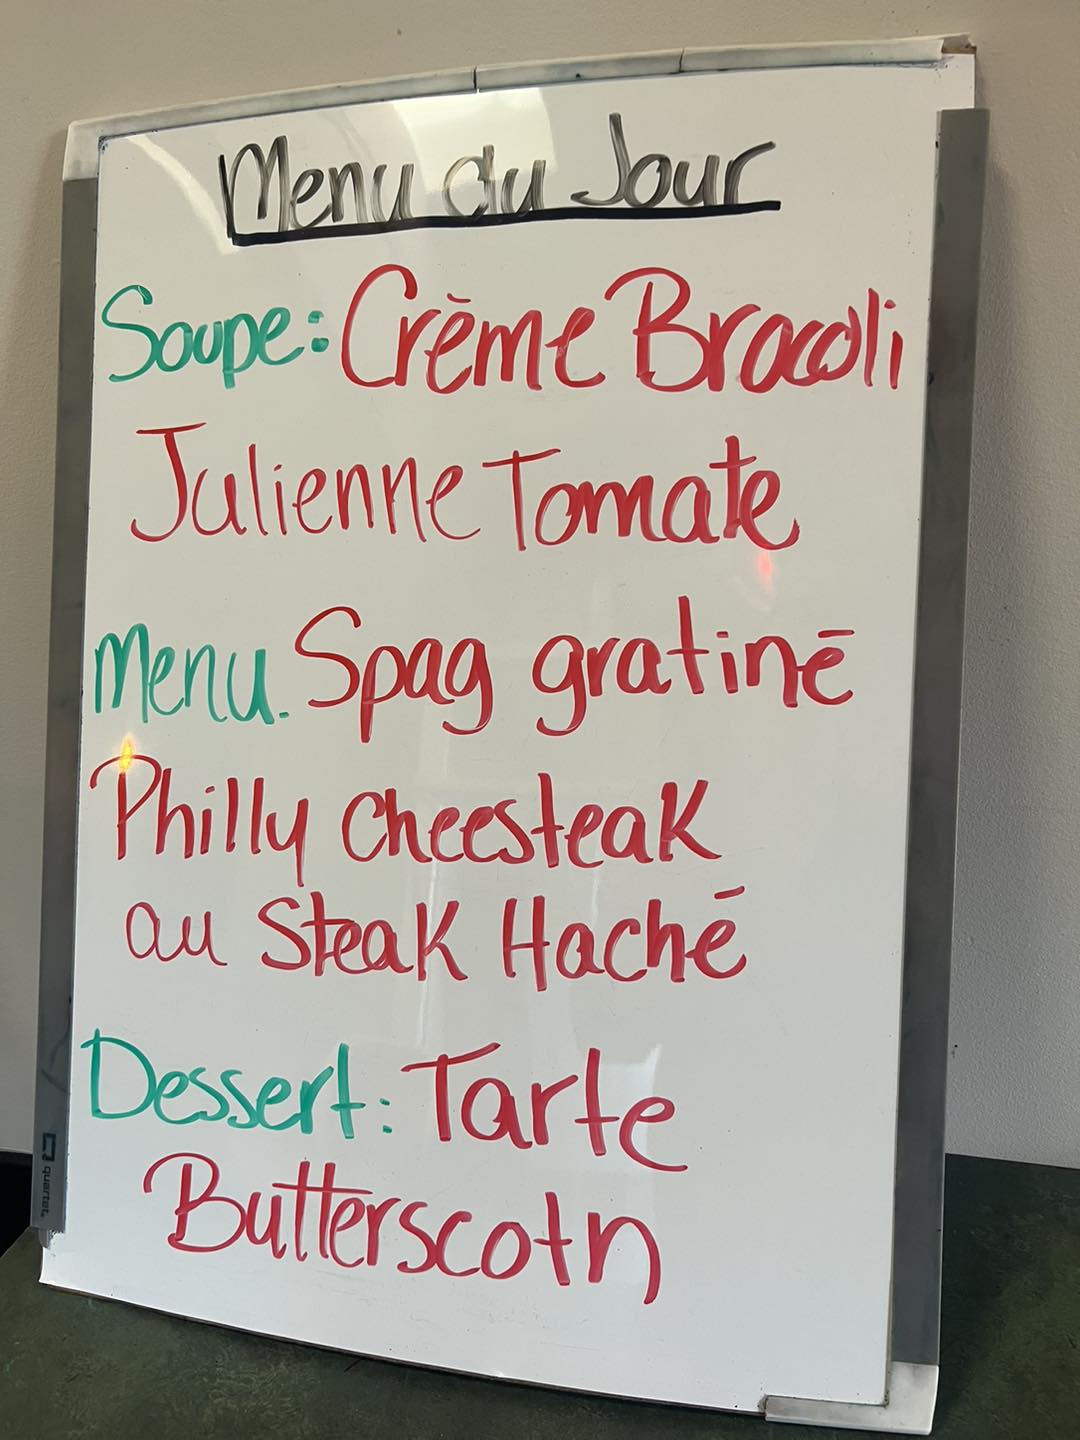 Menu du Jour
Soupe: Crème Brocoli
Julienne Tomate
Menu. Spag gratiné
Philly cheesteak
au Steak Haché
Dessert: Tarte
Butterscotn
quartet